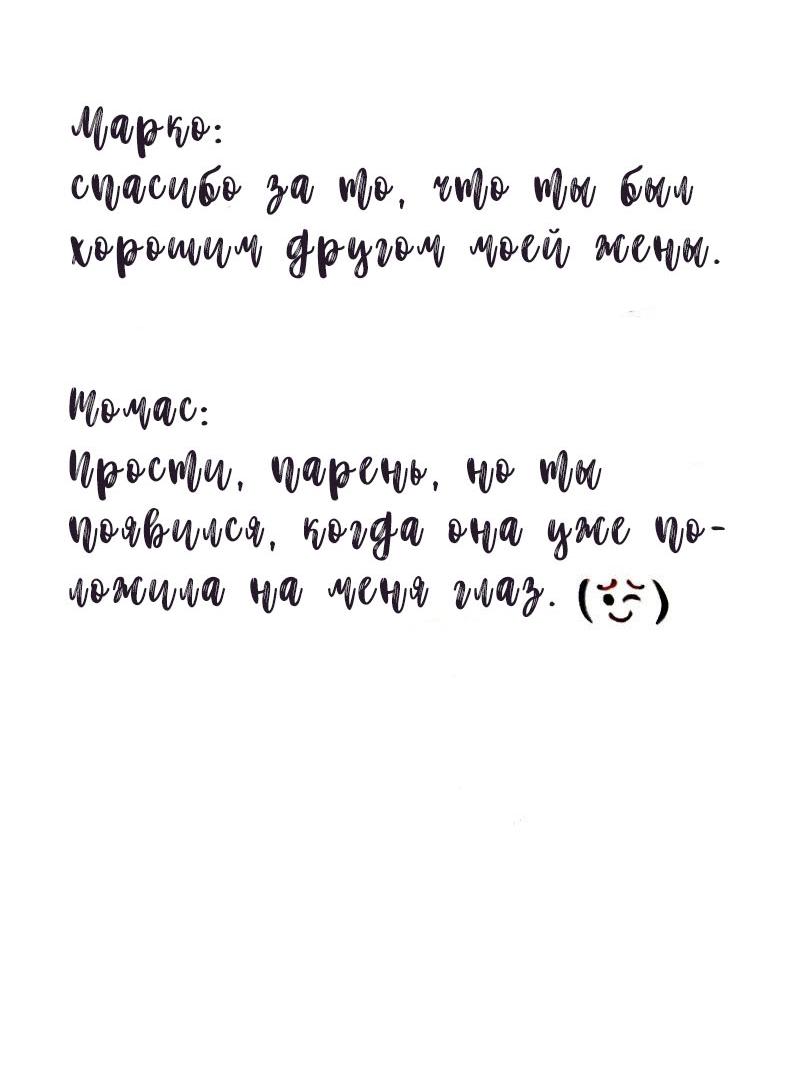 Марко:
спасибо за то, что ты был
хорошим другом моей жены.
Томас:
Прости, парень, но ты
появился, когда она уже по-
ложила на меня глаз.